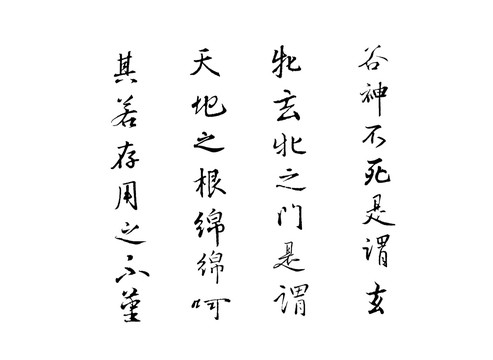 谷神不死是谓玄
牝玄牝之门是谓
天地之根绵绵呵
其若存用之不堇